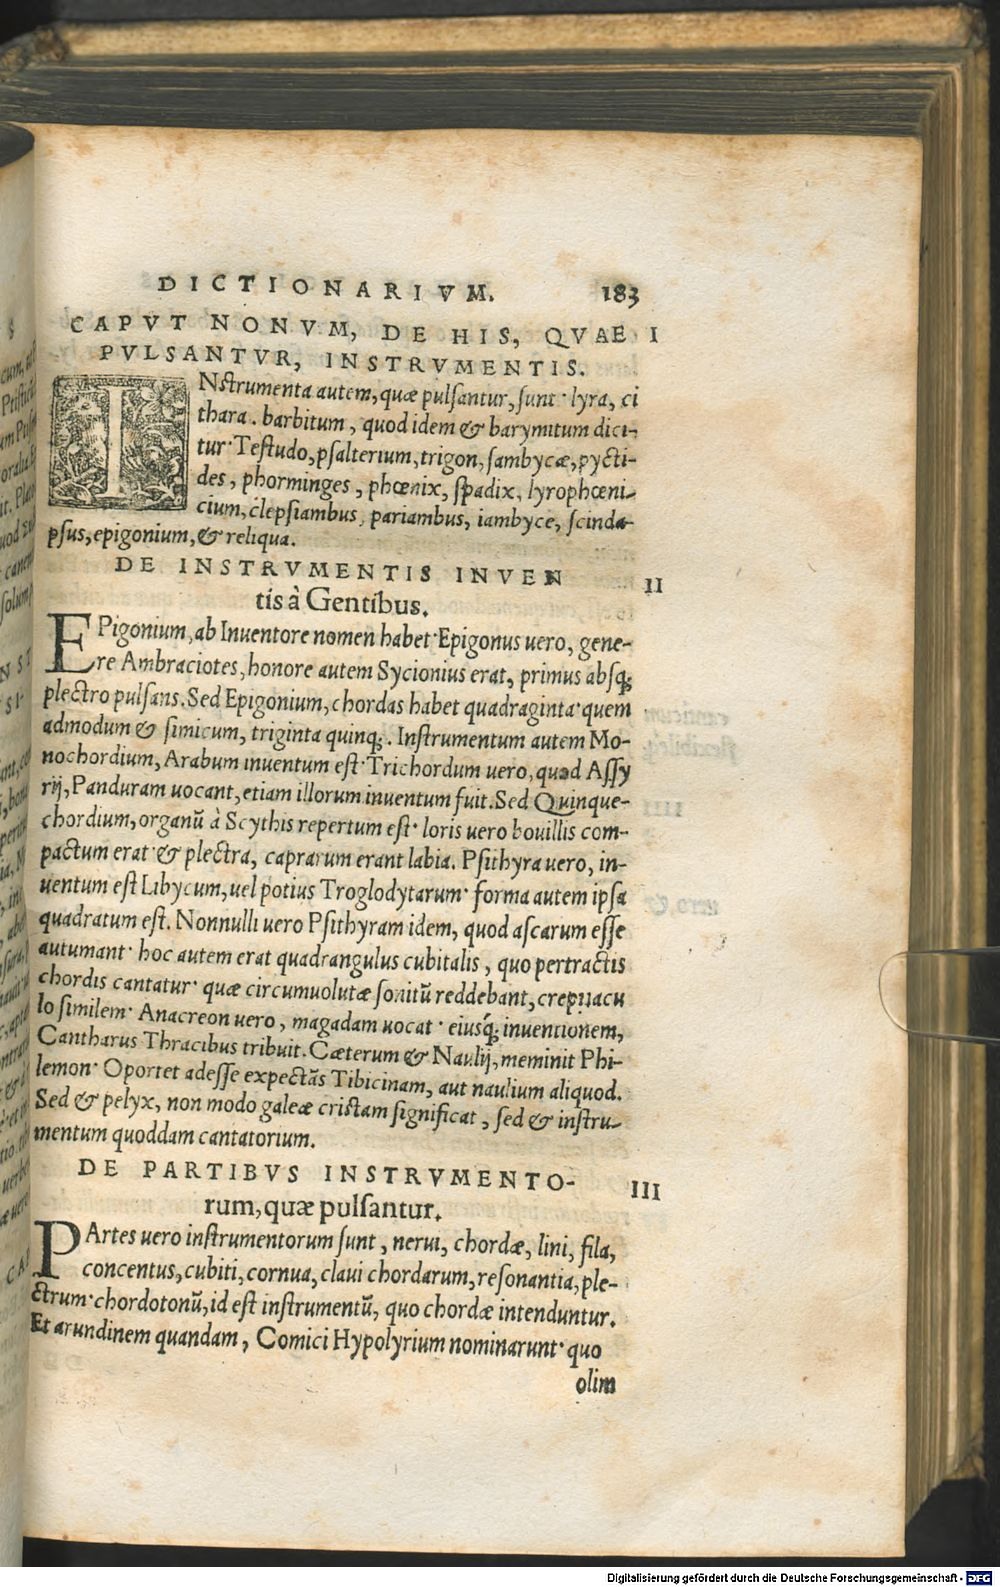 DICTIONARIVM. 183
CAPVT NONVM, DE HIS, QVAE I
PVLSANTVR, INSTRVMENTIS.
INstrumenta autem, quæ pulsantur, sunt· lyra, ci
thara. barbitum, quod idem & barymitum dici-
tur· Testudo, psalterium, trigon, sambycæ, pycti-
des, phorminges, phœnix, spadix, lyrophœni-
cium, clepsiambus, pariambus, iambyce, scinda-
psus, epigonium, & reliqua.
DE INSTRVMENTIS INVEN II
tis à Gentibus.
EPigonium, ab Inuentore nomen habet· Epigonus uero, gene-
re Ambraciotes, honore autem Sycionius erat, primus absq;
plectro pulsans. Sed Epigonium, chordas habet quadraginta· quem
admodum & simicum, triginta quinq;. Instrumentum autem Mo-
nochordium, Arabum inuentum est· Trichordum uero, quod Assy
rij, Panduram uocant, etiam illorum inuentum fuit. Sed Quinque-
chordium, organū à Scythis repertum est· loris uero bouillis com-
pactum erat· & plectra, caprarum erant labia. Psithyra uero, in-
uentum est Libycum, uel potius Troglodytarum· forma autem ipsa
quadratum est. Nonnulli uero Psithyram idem, quod ascarum esse
autumant· hoc autem erat quadrangulus cubitalis, quo pertractis
chordis cantatur· quæ circumuolutæ sonitū reddebant, crepitacu
lo similem· Anacreon uero, magadam uocat· eiusq́; inuentionem,
Cantharus Thracibus tribuit. Cæterum & Naulij, meminit Phi-
lemon· Oportet adesse expectās Tibicinam, aut naulium aliquod.
Sed & pelyx, non modo galeæ cristam significat, sed & instru-
mentum quoddam cantatorium.
DE PARTIBVS INSTRVMENTO- III
rum, quæ pulsantur.
PArtes uero instrumentorum sunt, nerui, chordæ, lini, fila,
concentus, cubiti, cornua, claui chordarum, resonantia, ple-
ctrum· chordotonū, id est instrumentū, quo chordæ intenduntur.
Et arundinem quandam, Comici Hypolyrium nominarunt· quo
olim
Digitalisierung gefördert durch die Deutsche Forschungsgemeinschaft - DFG